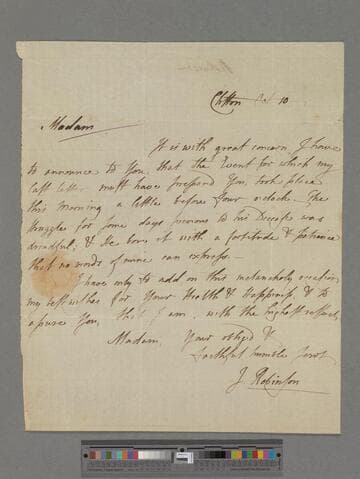 Clifton Oct 10
Madam
It is with great concern I have
to announce to You, that the Event for which my
last letter must have prepared You, took place
this Morning a little before four o'clock. The
struggles for some days previous to his Decease was
dreadful, & He bore it with a fortitude & patience
that no words of mine can express.
I have only to add on this melancholy occasion,
my best wishes for Your Health & Happiness, & to
assure You, that I am, with the highest respect,
Madam, Your oblig'd &
faithful humble Servt
J. Robinson